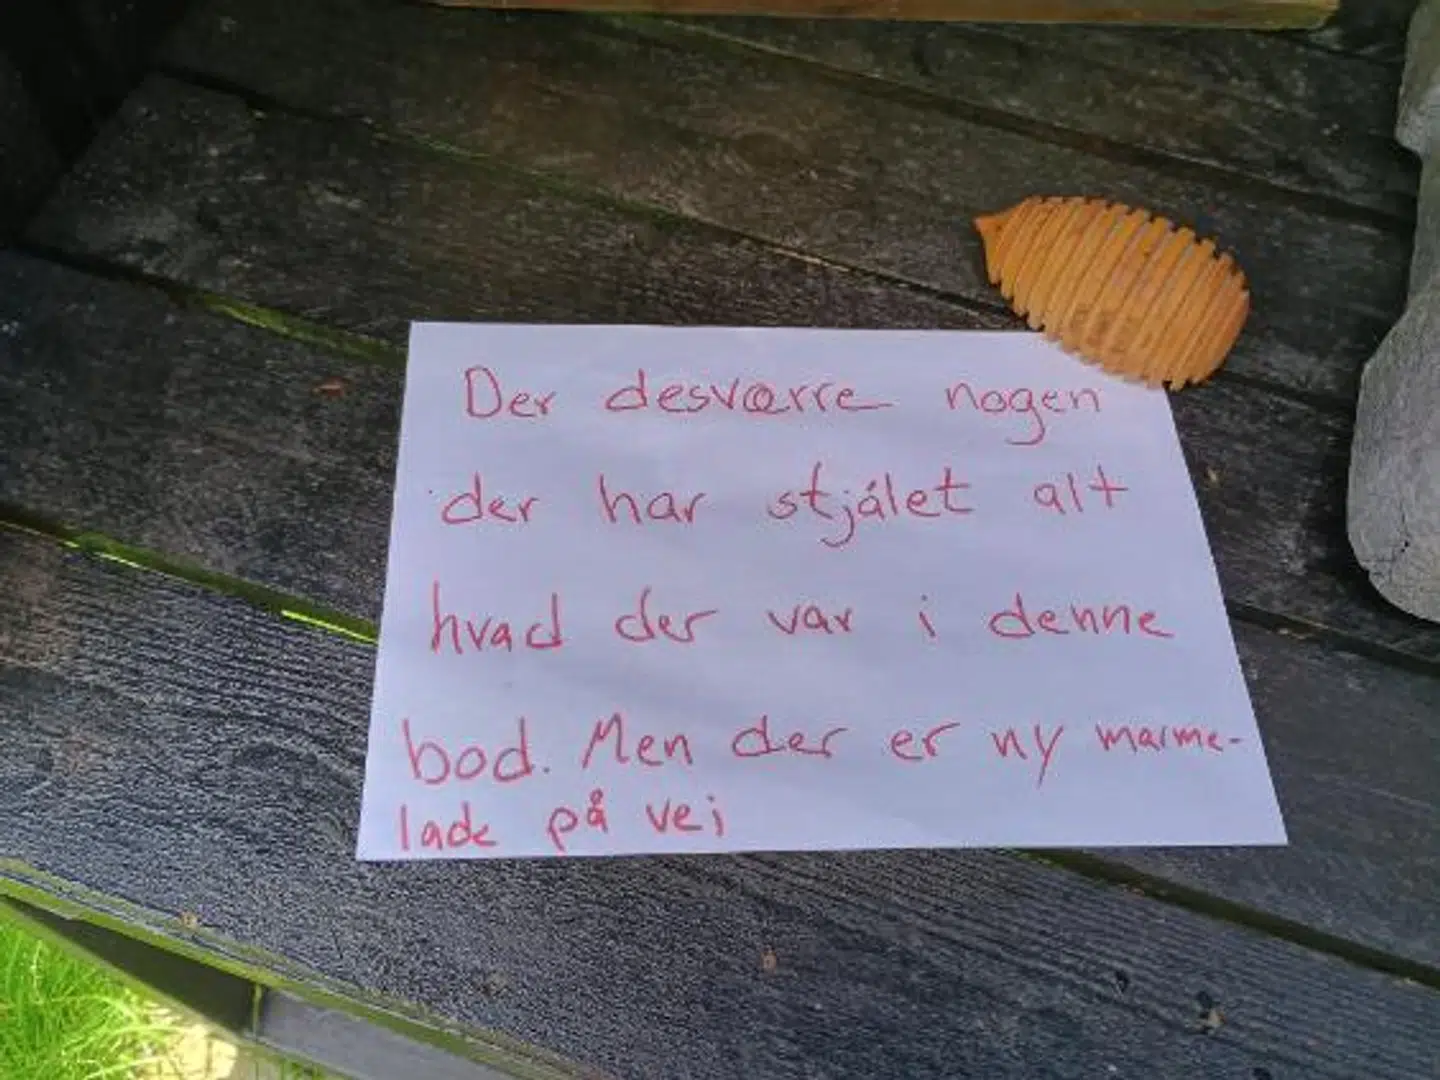 Der desværre nogen
der har stjålet alt
hvad der var i denne
bod. Men der er ny marme-
lade på vej